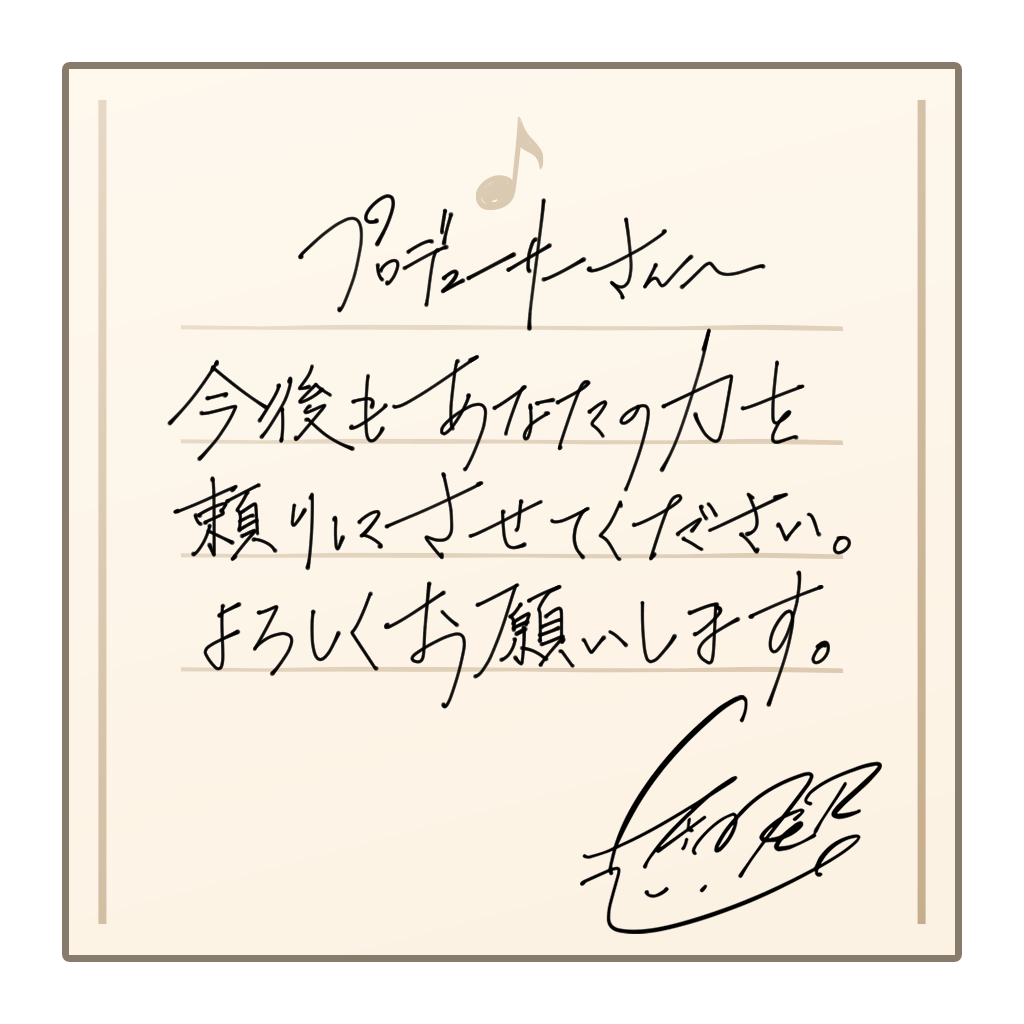 プロデューサーさんへ
今後もあなたの力を
頼りにさせてください。
よろしくお願いします。